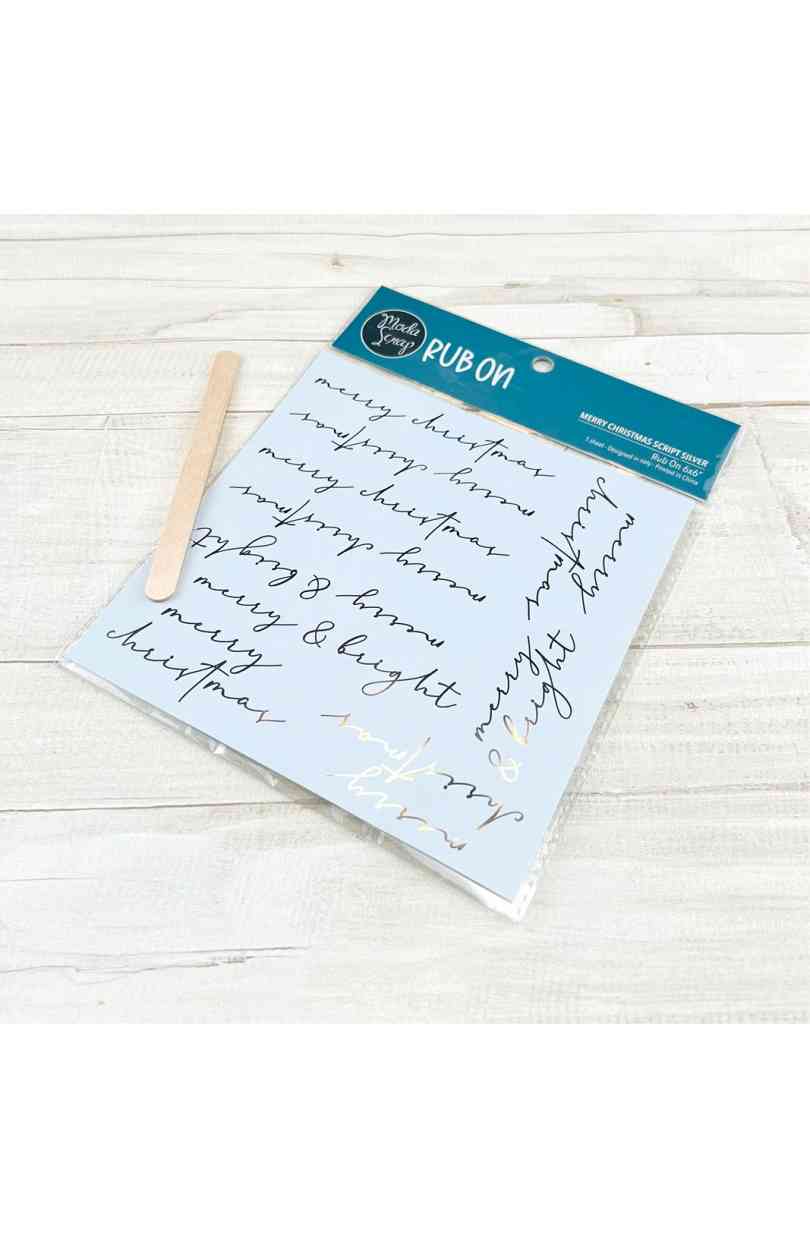 Moda
Scrap
RUB ON
MERRY CHRISTMAS SCRIPT SILVER
Rub On 6x6"
1 sheet - Designed in Italy - Printed in China
merry christmas
merry christmas
merry christmas
merry christmas
merry & bright
merry & bright
merry
christmas
merry
christmas
merry
& bright
merry
christmas